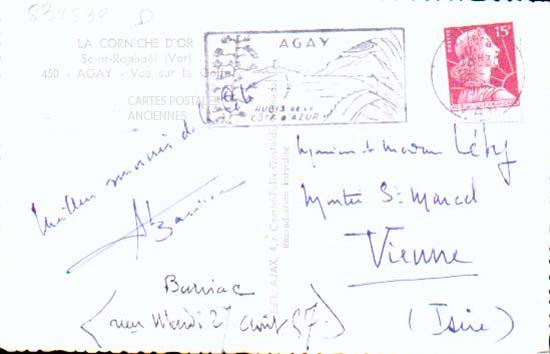 834538 D
LA CORNICHE D'OR
Saint-Raphaël (Var)
450 - AGAY - Vue sur le
CARTES POSTALES
ANCIENNES
AGAY
RUBIS DE LA
CÔTE D'AZUR
15F
POSTES
Meilleur souvenir d'
ABaniac
Baniac
(reçu Mardi 27 août 57)
Monsieur et Madame Léty
Montée St Marcel
Vienne
(Isère)
AJAX
Reproduction interdite